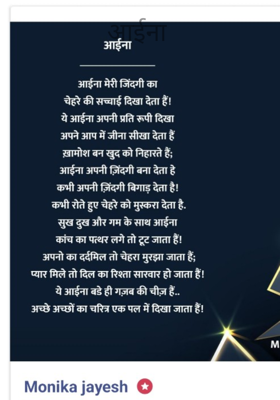 आईना
आईना
आईना मेरी जिंदगी का
चेहरे की सच्चाई दिखा देता हैं!
ये आईना अपनी प्रति रूपी दिखा
अपने आप में जीना सीखा देता हैं
ख़ामोश बन खुद को निहारते हैं;
आईना अपनी ज़िंदगी बना देता हे
कभी अपनी ज़िंदगी बिगाड़ देता है!
कभी रोते हुए चेहरे को मुस्करा देता है.
सुख दुख और गम के साथ आईना
कांच का पत्थर लगे तो टूट जाता हैं!
अपनो का दर्दमिल तो चेहरा मुरझा जाता हैं;
प्यार मिले तो दिल का रिश्ता सारवार हो जाता हैं!
ये आईना बडे ही गज़ब की चीज़ हैं..
अच्छे अच्छों का चरित्र एक पल में दिखा जाता हैं!
M
Monika jayesh